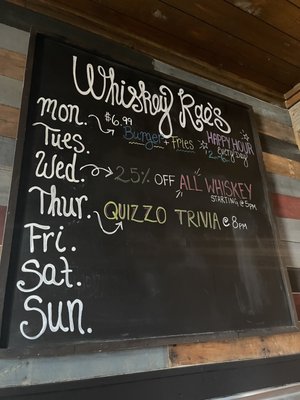 Whiskey Rae's
Mon. $6.99 Burger + Fries
HAPPY HOUR
Every Day
Tues.
Wed. 25% OFF ALL WHISKEY
STARTING @ 5PM
Thur. QUIZZO TRIVIA @ 8pm
Fri.
Sat.
Sun.